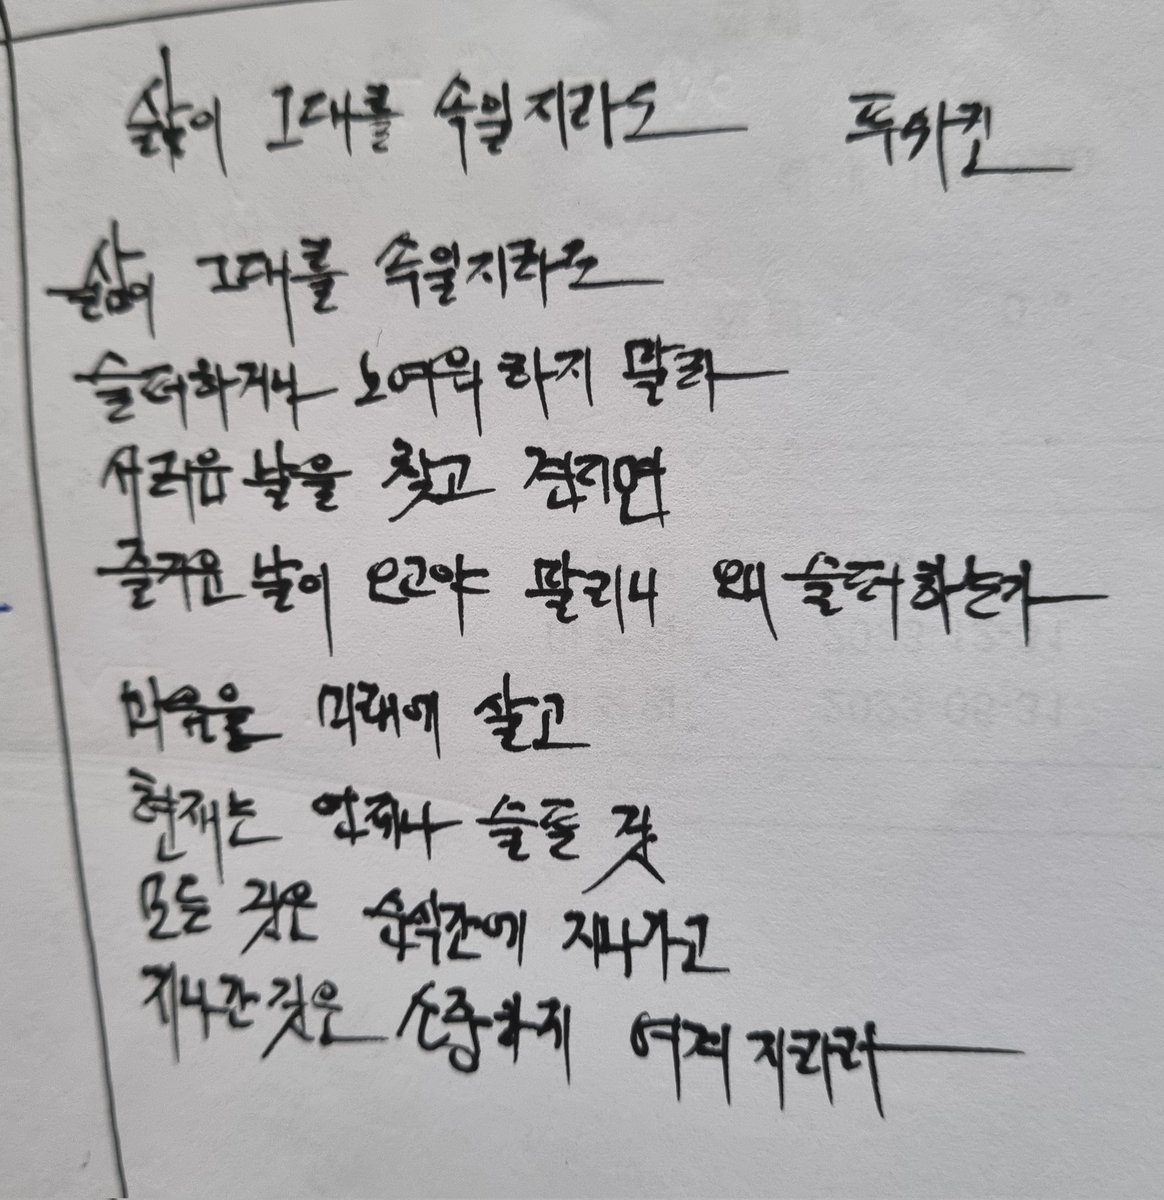 삶이 그대를 속일지라도 푸쉬킨
삶이 그대를 속일지라도
슬퍼하거나 노여워 하지 말라
서러움 날을 참고 견디면
즐거운 날이 오고야 말리니 왜 슬퍼하는가
마음을 미래에 살고
현재는 언제나 슬픈 것
모든 것은 순식간에 지나가고
지나간것은 소중하지 여겨지리라